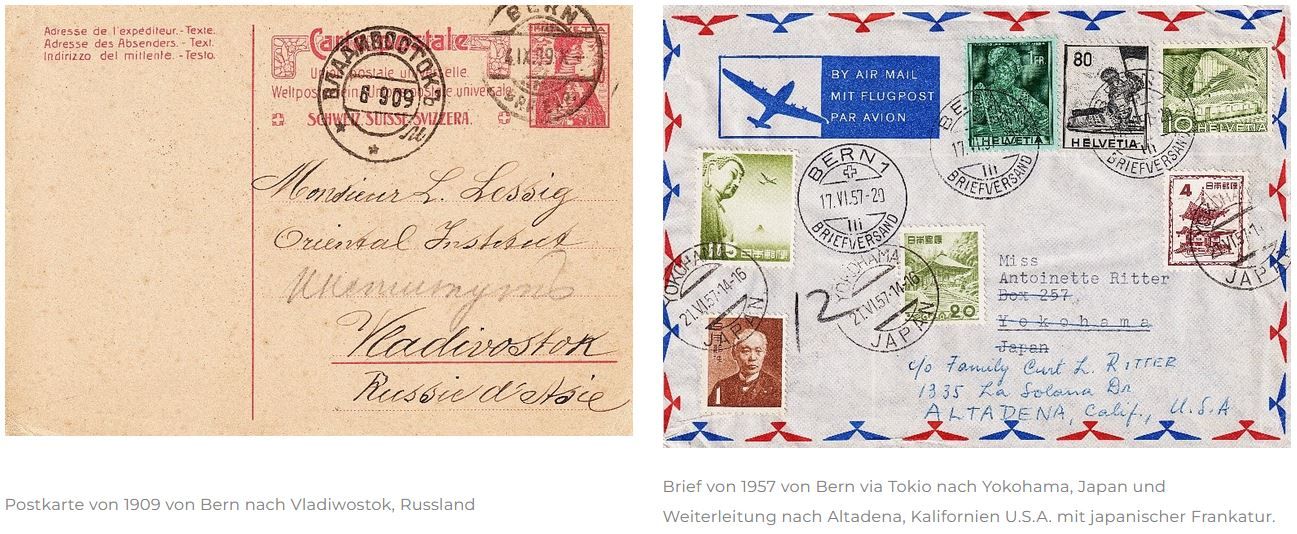 Adresse de l'expéditeur.-Texte.
Adresse des Absenders. - Text.
Indirizzo del mittente. -Testo.
Carte postale
Weltpostverein. postale universale.
SCHWEIZ.SUISSE.SVIZZERA.
ВЛАДИВОСТОКЪ
6 9 09
BERN
HELVETIA
Monsieur L. Lessig
Oriental Institut
Vladivostok
Russie d'Asie
BY AIR MAIL
MIT FLUGPOST
PAR AVION
1FR
80
HELVETIA
10 HELVETIA
BERN 1
17.VI.57-20
BRIEFVERSAND
17.VI.57
BRIEFVERSAND
BRIEFVERSAND
日本郵便
YOKOHAMA
21.VI.57.14-16
JAPAN
1
12
YOKOHAMA
21.VI.57.14-16
JAPAN
日本郵便
20
4 日本郵便
JAPAN
Miss
Antoinette Ritter
Box 257,
Yokohama
Japan
c/o Family Curt L. RITTER
1335 La Solana Dr
ALTADENA, Calif., U.S.A
Postkarte von 1909 von Bern nach Vladiwostok, Russland
Brief von 1957 von Bern via Tokio nach Yokohama, Japan und
Weiterleitung nach Altadena, Kalifornien U.S.A. mit japanischer Frankatur.